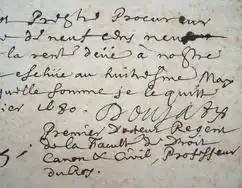 nt Prestre Procureur
e de neuf cens neuf
la rente deüe a nostre
eschüe au huitiême May
quelle somme je le quitte
ier 1680. Doujat
Premier Docteur Regent
de la Faculté de Droit
Canon & Civil, Professeur
du Roy.